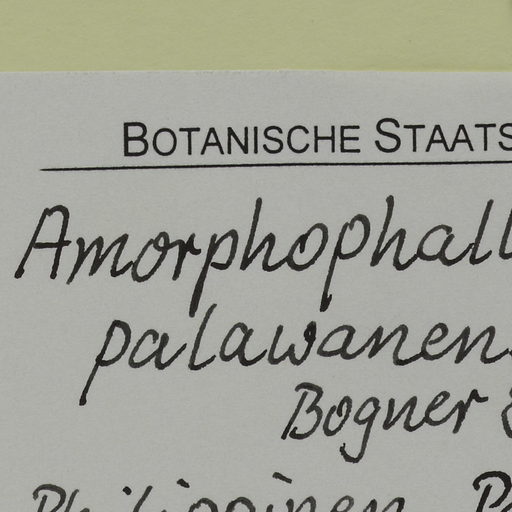 BOTANISCHE STAATS
Amorphophall
palawanens
Bogner &
Philippinen P